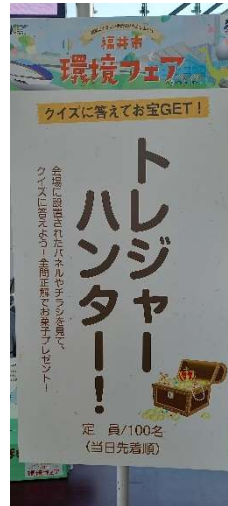 福井市
環境フェア
クイズに答えてお宝GET!
トレジャー
ハンター!
会場に設置されたパネルやチラシを見て、
クイズに答えよう!全問正解でお菓子プレゼント!
定 員/100名
(当日先着順)
環境フェア